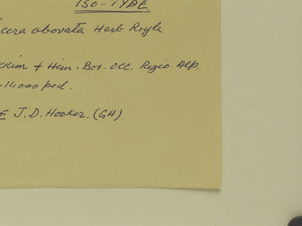 ISO-TYPE
icera obovata Herb Royle
kkim & Him. Bor. Occ. Regio Alp.
-14000 ped.
J. D. Hooker. (GH).